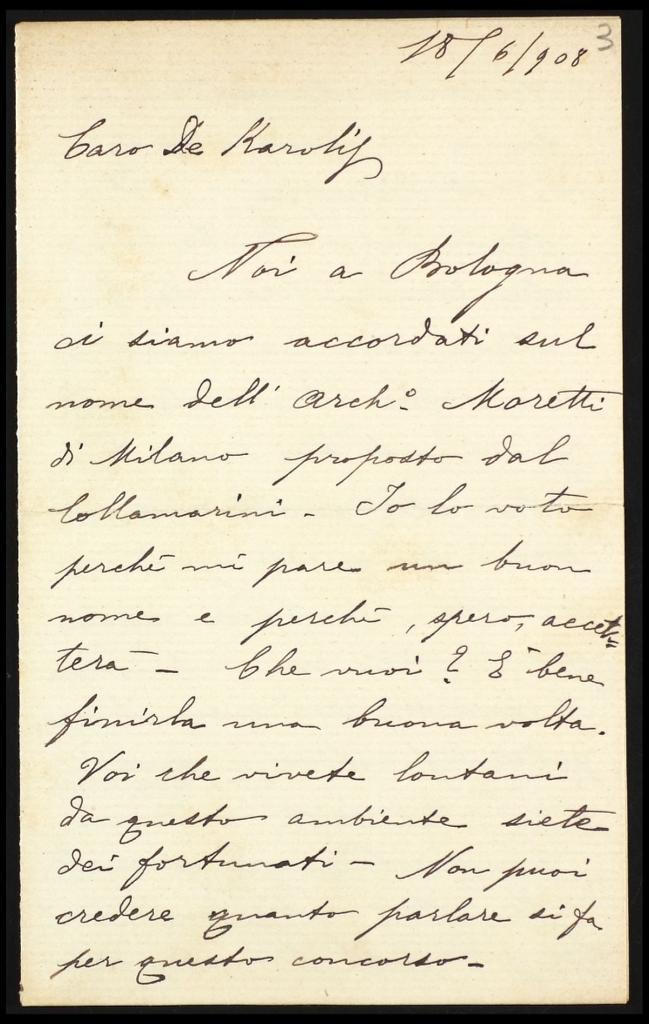 3
18/6/908
Caro De Karolis
Noi a Bologna
ci siamo accordati sul
nome dell' Arch.º Moretti
di Milano proposto dal
Collamarini - Io lo voto
perchè mi pare un buon
nome e perchè, spero, accet-
terà - Che vuoi? È bene
finirla una buona volta.
Voi che vivete lontani
da questo ambiente siete
dei fortunati - Non puoi
credere quanto parlare si fa
per questo concorso -